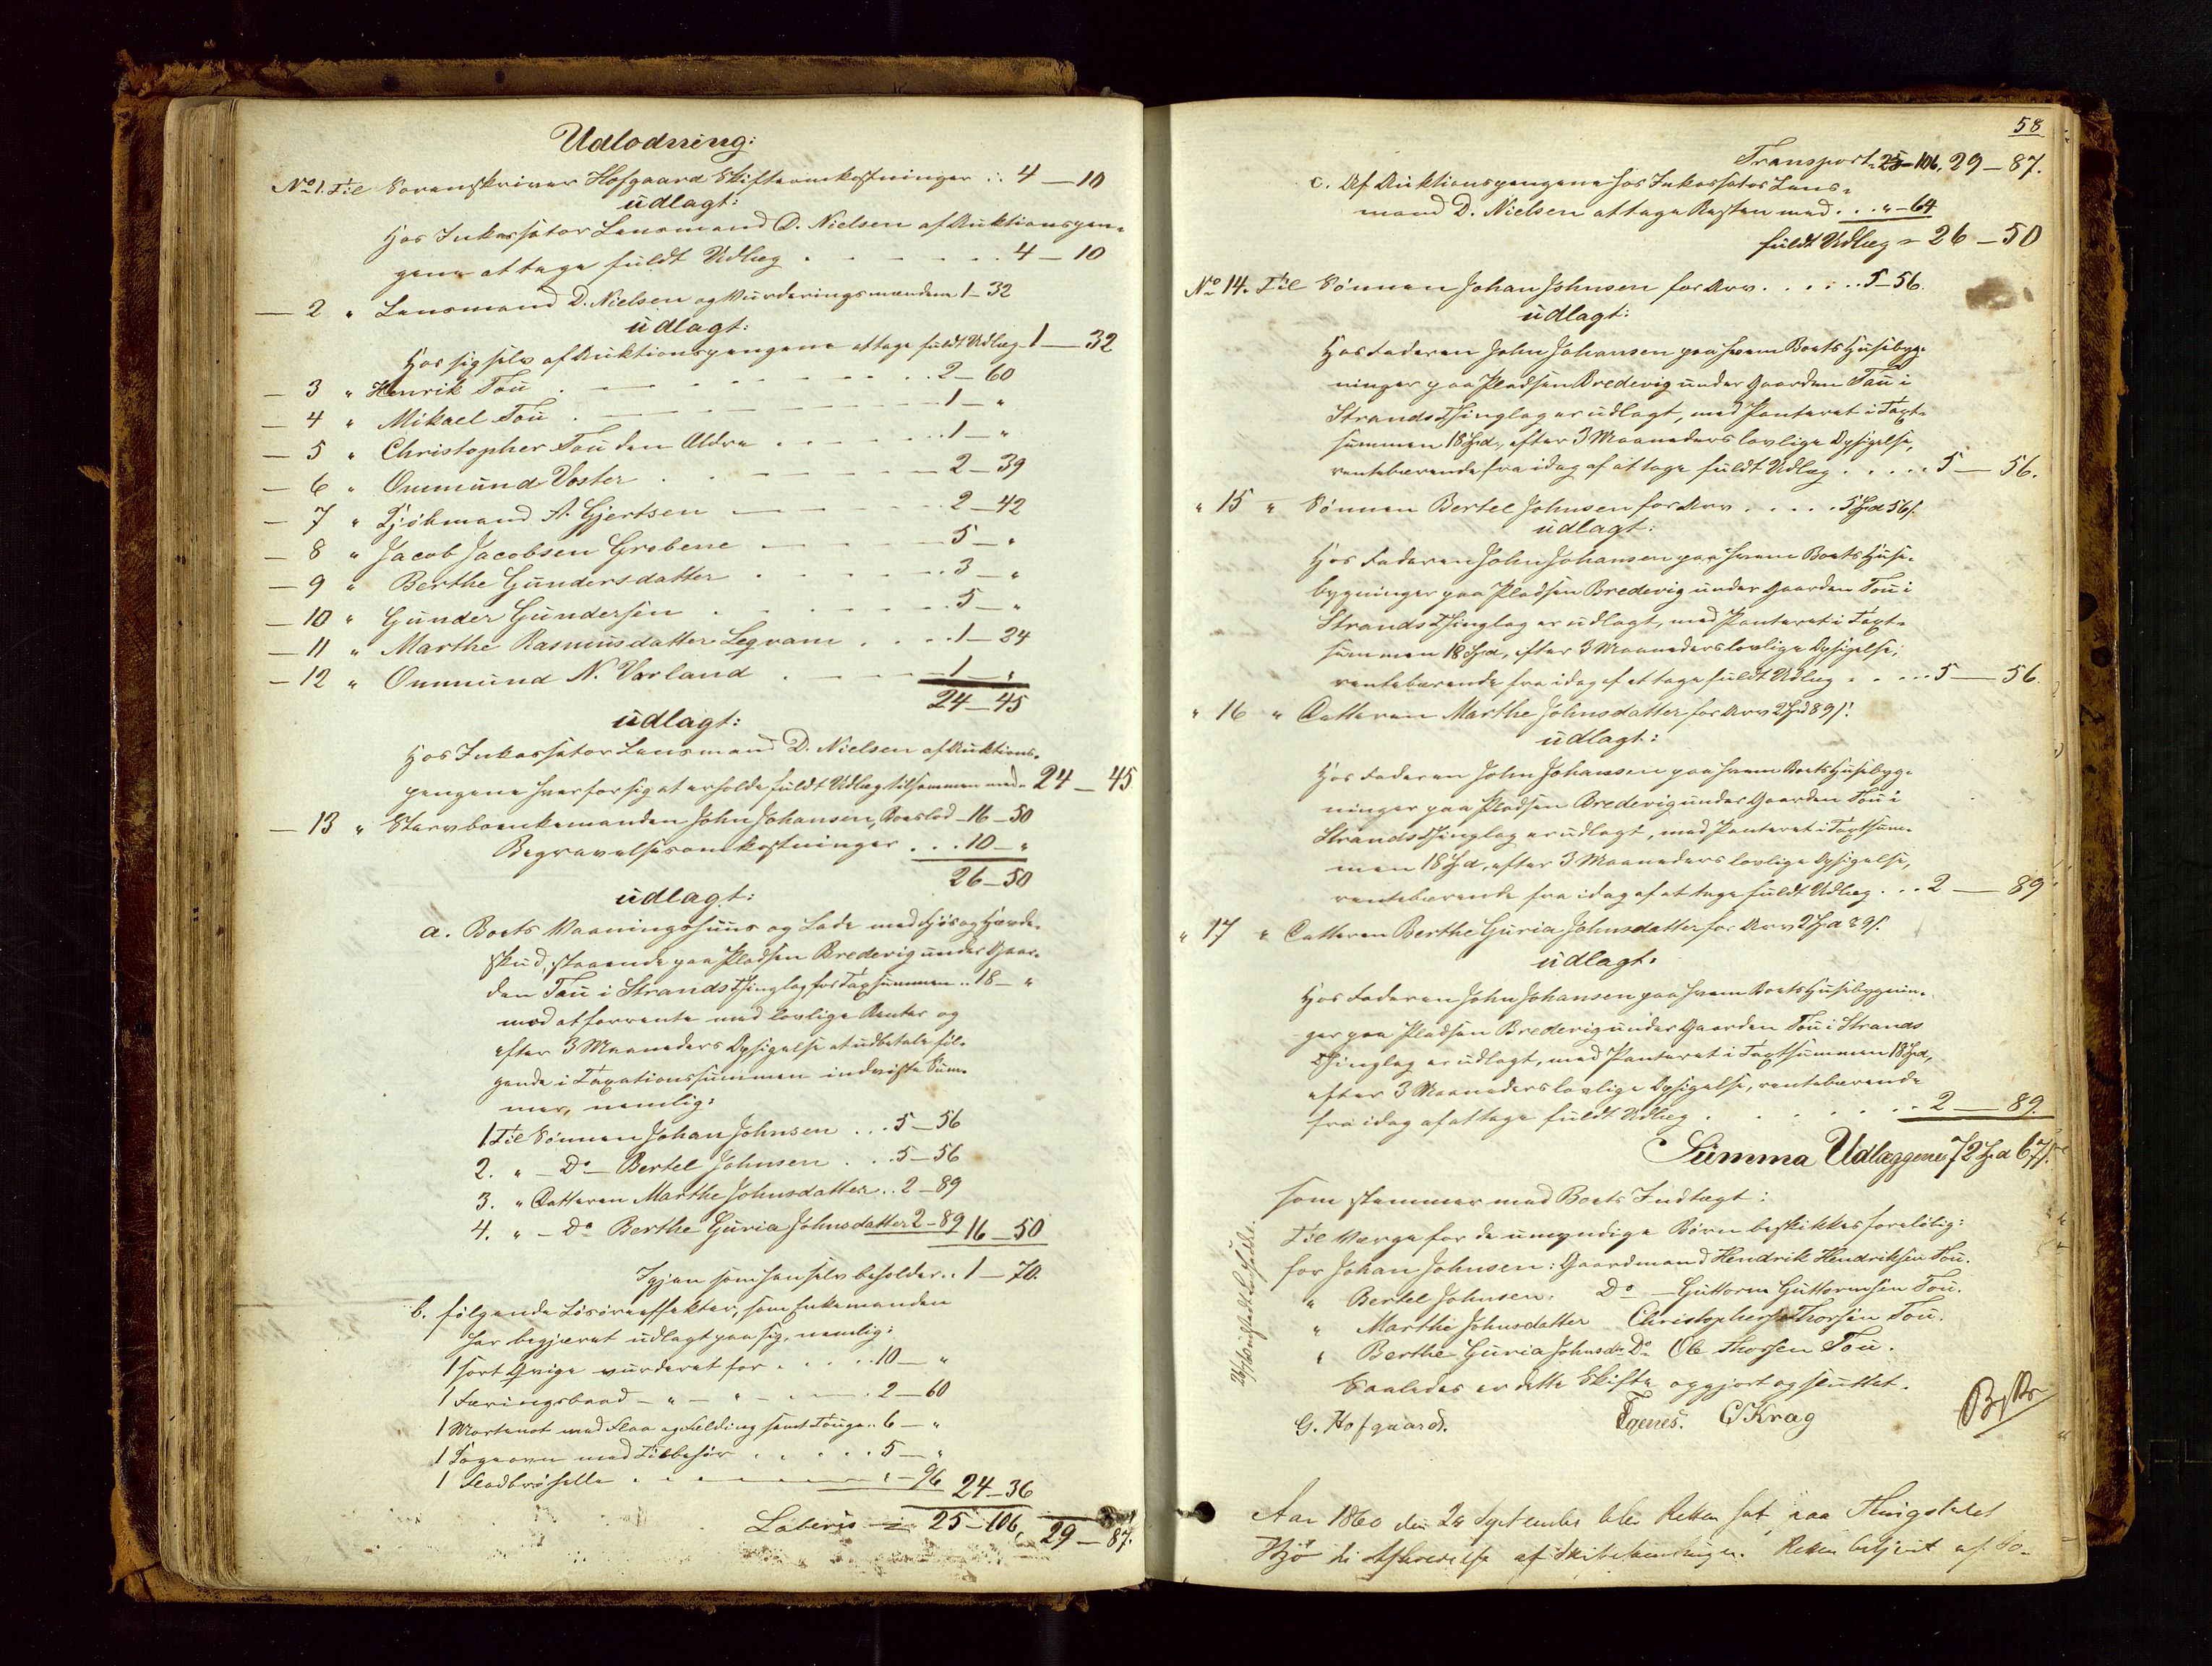 Udlodning:
No 1. Til Sorenskriver Hofgaard Skifteomkostninger .. 4 — 10
udlagt:
Hos Inkassator Lensmand D. Nielsen af Auktionspen-
gene at tage fuldt Udlæg . . . . . . 4 — 10
— 2 " Lensmand D. Nielsen og Vurderingsmændene 1 — 32
udlagt:
Hos sig selv af Auktionspengene at tage fuldt Udlæg 1 — 32
— 3 " Henrik Tou . . . . . . 2 — 60
— 4 " Mikael Tou . . . . . . 1 — "
— 5 " Christopher Tou den Ældre . . . . 1 — "
— 6 " Ommund Voster . . . . . 2 — 39
— 7 " Kjøbmand A. Gjertsen . . . . 2 — 42
— 8 " Jacob Jacobsen Grobene . . . . 5 — "
— 9 " Berthe Gundersdatter . . . . . 3 — "
— 10 " Gunder Gundersen . . . . . 5 — "
— 11 " Marthe Rasmusdatter Legvam . . . 1 — 24
— 12 " Ommund N. Varland . . . . 1 — "
24 — 45
udlagt:
Hos Inkassator Lensmand D. Nielsen af Auktions-
pengene hver for sig at erholde fuldt Udlæg tilsammen med 24 — 45
— 13 " Stervboenkemanden John Johansen, Boeslod 16 — 50
Begravelsesomkostninger . . . 10 — "
26 — 50
udlagt:
a. Boets Vaaningshuus og Lade med Fjøs og
Skud, staaende paa Pladsen Bredevig under Gaar-
den Tau i Strands Thinglag for Taxtsummen .. 18 — "
mod at forrente med lovlige Renter og
efter 3 Maaneders Opsigelse at udbetale føl-
gende i Taxationssummen indviste Sum-
mer, nemlig:
1. Til Sønnen Johan Johnsen ... 5 — 56
2. " — Do — Bertel Johnsen . . . 5 — 56
3. " Datteren Marthe Johnsdatter .. 2 — 89
4. " — Do Berthe Guria Johnsdatter 2 — 89 16 — 50
Igjen som han selv beholder .. 1 — 70.
b. følgende Løsøreeffekter, som Enkemanden
har begjæret udlagt paa sig, nemlig:
1 sort Qvige vurderet for . . . . 10 — "
1 Færingsbaad — " — " — . . . 2 — 60
1 Mortenot med Flaa og Felding samt Touge .. 6 — "
1 Kageovn med Tilbehør . . . . . 5 — "
1 Fladbrøhelle . . . . . . " — 96 24 — 36
Lateris = 25 — 106, 29 — 87.
58
Transport = 25 — 106, 29 — 87.
c. Af Auktionspengene hos Inkassator Lens-
mand D. Nielsen at tage Resten med . . . " — 64
fuldt Udlæg = 26 — 50
No 14. Til Sønnen Johan Johnsen for Arv . . . . . 5 — 56.
udlagt:
Hos Faderen John Johansen paa hvem Boets Husebyg-
ninger paa Pladsen Bredevig under Gaarden Tau i
Strands Thinglag er udlagt, med Panteret i Taxt-
summen 18 Spd, efter 3 Maaneders lovlige Opsigelse,
rentebærende fra idag af at tage fuldt Udlæg . . . . . 5 — 56.
" 15 " Sønnen Bertel Johnsen for Arv . . . . 5 Spd 56 s.
udlagt:
Hos Faderen John Johansen paa hvem Boets Huse-
bygninger paa Pladsen Bredevig under Gaarden Tou i
Strands Thinglag er udlagt, med Panteret i Taxt-
summen 18 Spd, efter 3 Maaneders lovlige Opsigelse,
rentebærende fra idag af at tage fuldt Udlæg . . . . 5 — 56.
" 16 " Datteren Marthe Johnsdatter for Arv 2 Spd 89 s.
udlagt:
Hos Faderen John Johansen paa hvem Boets Husebyg-
ninger paa Pladsen Bredevig under Gaarden Tou i
Strands Thinglag er udlagt, med Panteret i Taxtsum-
men 18 Spd, efter 3 Maaneders lovlige Opsigelse,
rentebærende fra idag af at tage fuldt Udlæg . . . 2 — 89
" 17 " Datteren Berthe Guria Johnsdatter for Arv 2 Spd 89 s.
udlagt.
Hos Faderen John Johansen paa hvem Boets Husebygnin-
ger paa Pladsen Bredevig under Gaarden Tou i Strands
Thinglag er udlagt, med Panteret i Taxtsummen 18 Spd,
efter 3 Maaneders lovlige Opsigelse, rentebærende
fra idag af at tage fuldt Udlæg . . . . . . 2 — 89.
Summa Udlæggene 72 Spd 67 s.
som stemmer med Boets Indtægt:
Til Værge for de umyndige Børn beskikkes foreløbig:
for Johan Johnsen: Gaardmand Hendrik Hendriksen Tou.
" Bertel Johnsen: Do — Guttorm Guttormsen Tou.
" Marthe Johnsdatter Christopher Thorsen Tou.
" Berthe Guria Johnsdr Do Ole Thorsen Tou.
Saaledes er dette Skifte opgjort og sluttet.
G. Hofgaard. Egenes. C Krag
Aar 1860 den 24 September blev Retten sat paa Thingstedet
af Skibet Retten betjent af So-